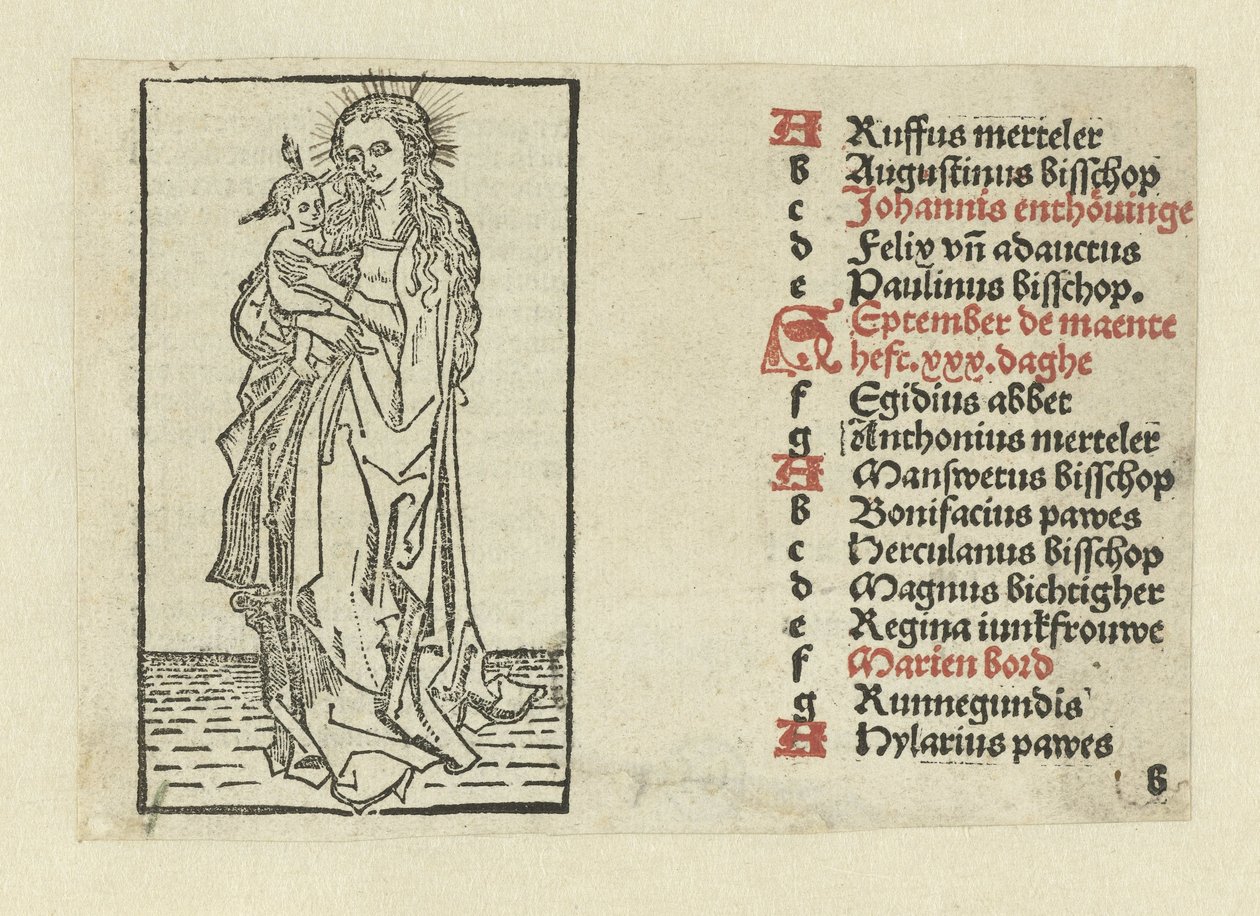 A Ruffus merteler
b Augustinus bisschop
c Johannis enthöuinge
d Felix vn̄ adauctus
e Paulinus bisschop.
September de maente
heft.xxx.daghe
f Egidius abbet
g Anthonius merteler
A Manswetus bisschop
b Bonifacius pawes
c Herculanus bisschop
d Magnus bichtigher
e Regina iunkfrouwe
f Marien bord
g Kunnegundis
A Hylarius pawes
b